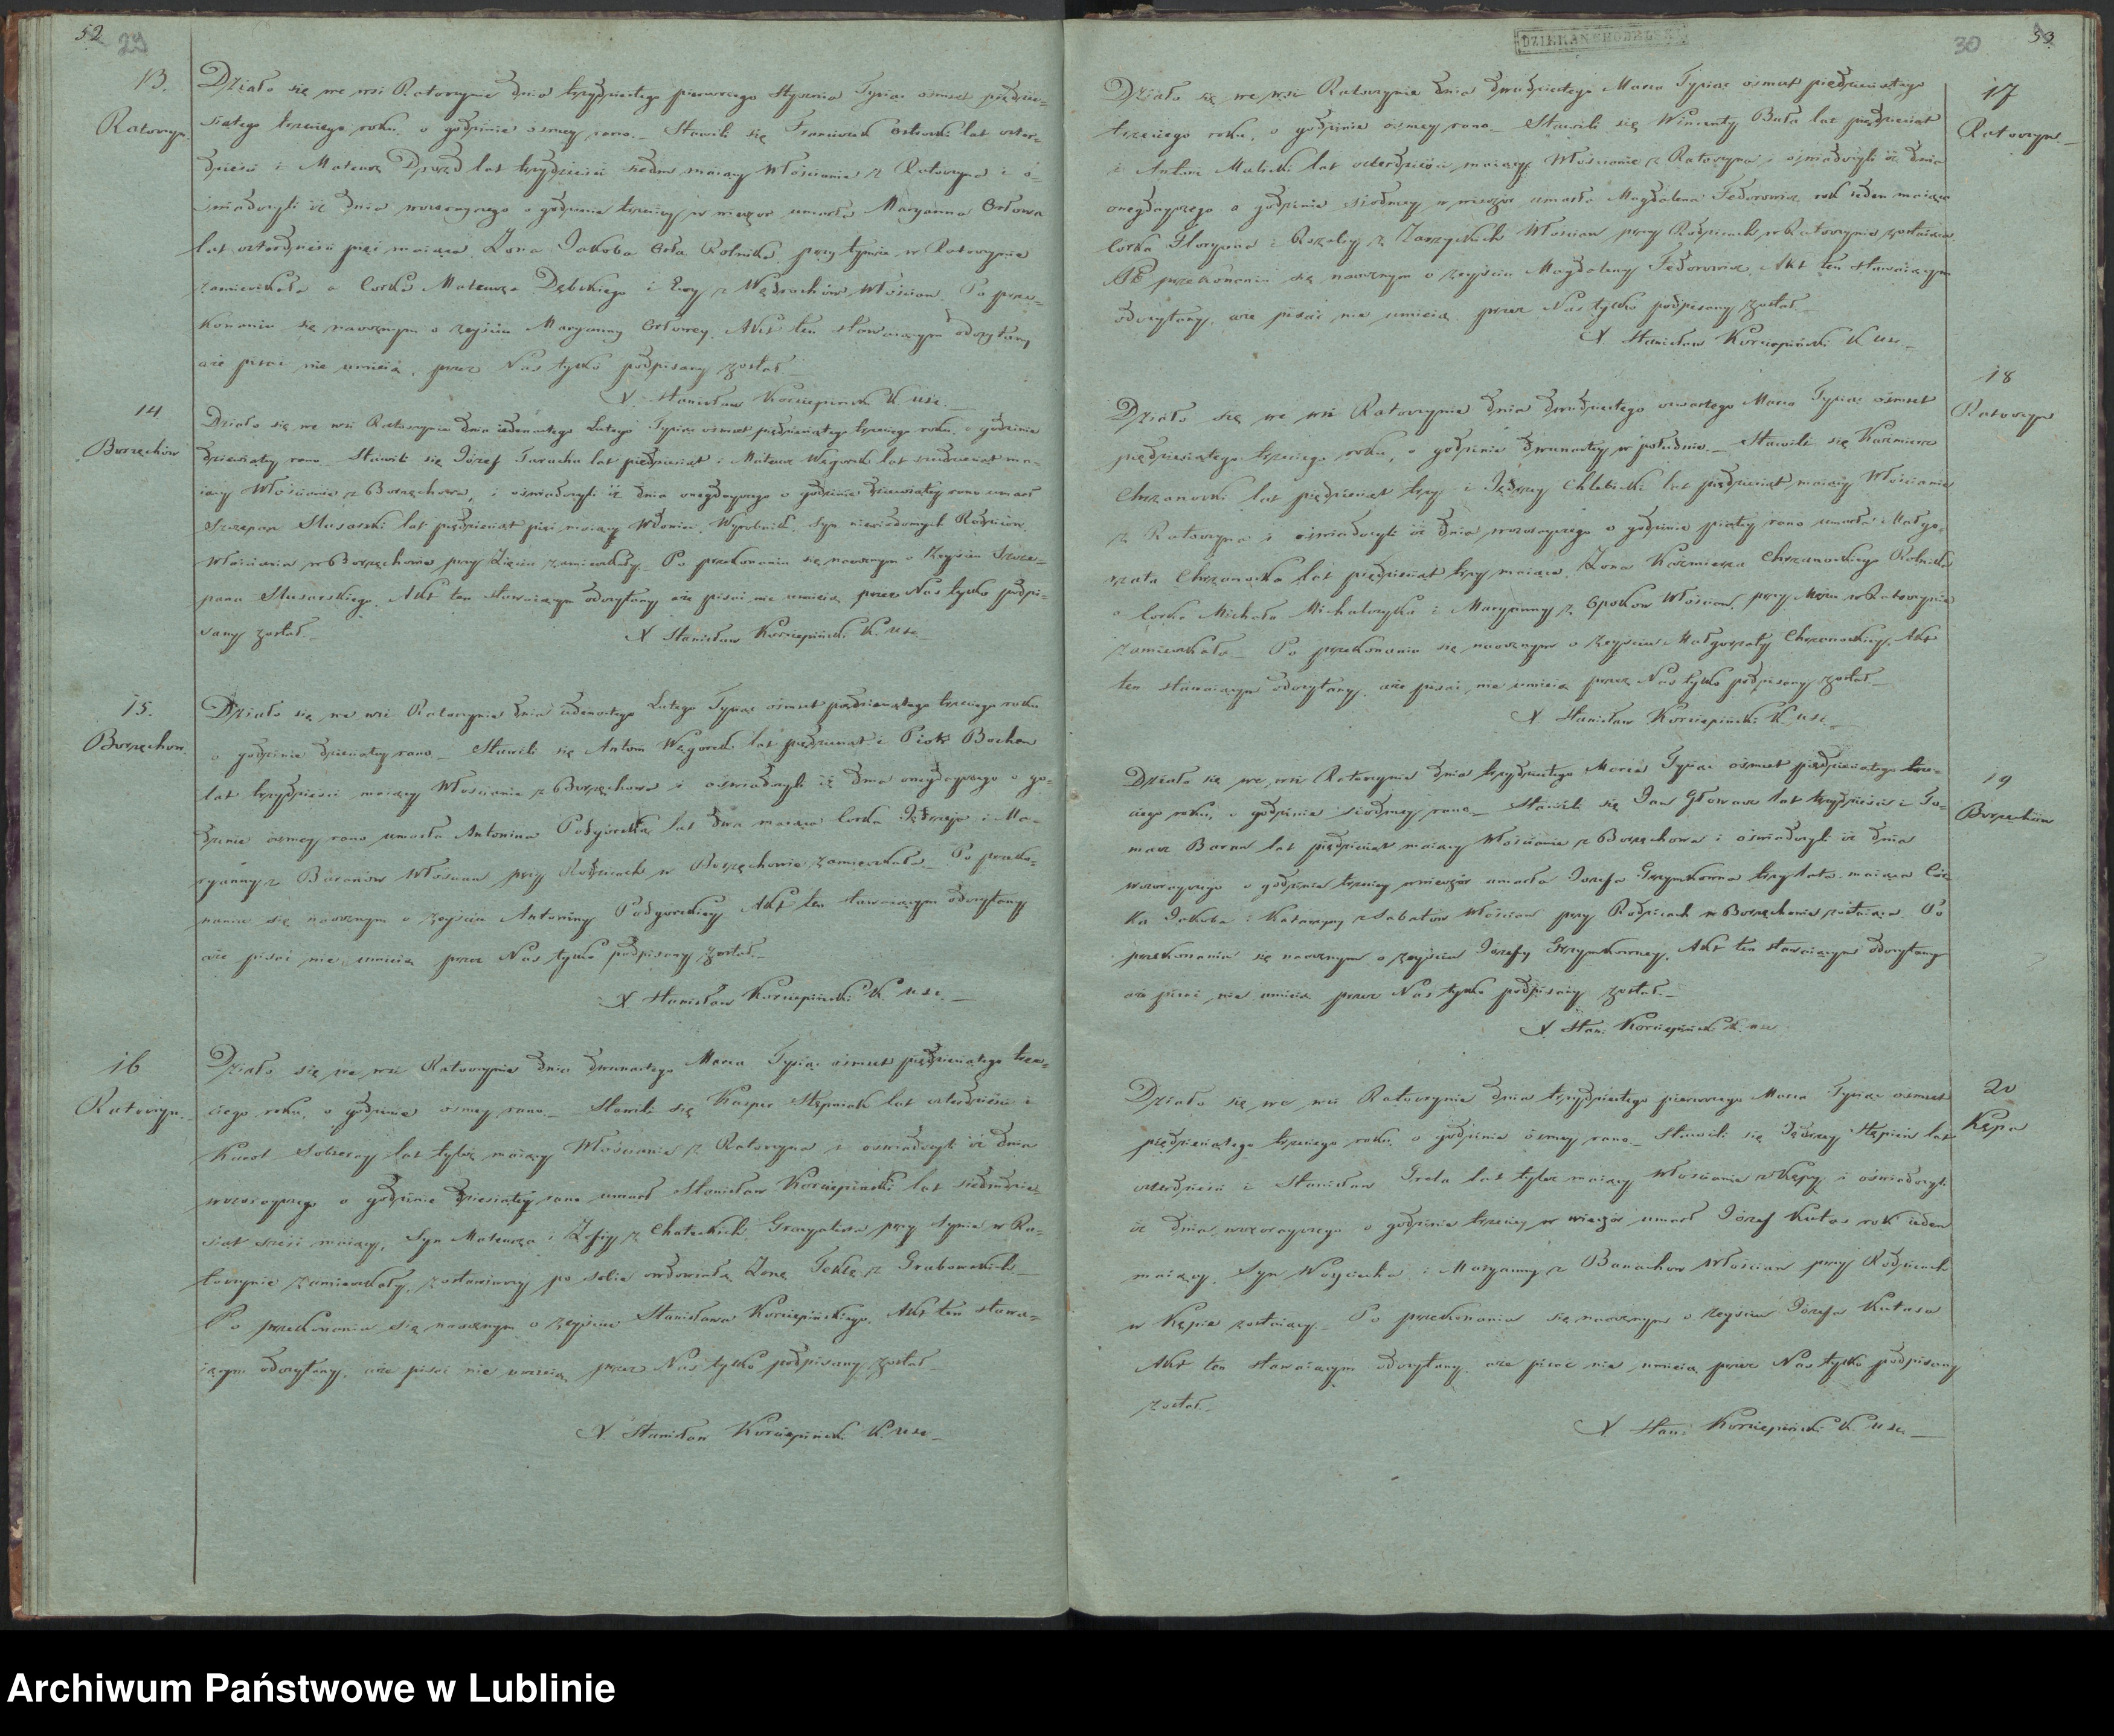 52
29
13.
Ratoszyn
Działo się we wsi Ratoszynie dnia trzydziestego pierwszego Stycznia Tysiąc ośmset pięćdzie=
siątego trzeciego roku, o godzinie ósmej rano. Stawili się Franciszek lat czter=
dzieści i Mateusz Drozd lat trzydzieści siedm mający Włościanie z Ratoszyna i o=
świadczyli iż dnia wczorayszego o godzinie trzeciey w wieczór umarła Maryanna Orłowa
lat czterdzieści pięć maiąca, Żona Jakoba Orła Rolnika, przy tymże w Ratoszynie
zamieszkała a Corka Mateusza Dębskiego i Ewy z Włościan. Po prze=
konaniu się naocznym o zeyściu Maryanny Orłowey, Akt ten stawaiącym odczytany
aże pisać nie umieią, przez Nas tylko podpisany został.
X. Stanisław Korciepiński K. U S C.
14
Borzęchów
Działo się we wsi Ratoszynie dnia iedenastego Lutego Tysiąc ośmset pięćdziesiątego trzeciego roku, o godzinie
dziewiątey rano. Stawili się Józef Taracha lat pięćdziesiąt i Mateusz Węgorek lat ma=
iący Włościanie z Borzęchowa, i oświadczyli iż dnia onegdayszego o godzinie dziewiątey rano umarł
Szczepan Slusarski lat pięćdziesiąt pięć maiący Wdowiec, Wyrobnik, Syn niewiadomych Rodziców
Włościanin w Borzęchowie przy Zięciu zamieszkały. Po przekonaniu się naocznym o Zeyściu Szcze=
pana Slusarskiego, Akt ten stawaiącym odczytany aże pisać nie umieią przez Nas tylko podpi=
sany został.
X Stanisław Korciepiński K. U S C.
15.
Borzęchow
Działo się we wsi Ratoszynie dnia iedenastego Lutego Tysiąc ośmset pięćdziesiątego trzeciego roku
o godzinie dziesiątey rano. Stawili się Antoni Węgorek lat pięćdziesiąt i Piotr Bochen
lat trzydzieści maiący Włościanie z Borzęchowa i oświadczyli iż dnia onegdayszego o go=
dzinie ósmey rano umarła Antonina Podgórska lat dwa maiąca Corka Jędrzeja i Ma=
ryanny z Baranów Włościan przy Rodzicach w Borzęchowie zamieszkała. Po przeko=
naniu się naocznym o zeyściu Antoniny Podgorskiey Akt ten stawaiącym odczytany
aże pisać nie umieią przez Nas tylko podpisany został.
X Stanisław Korciepiński K. U S C.
16
Ratoszyn
Działo się we wsi Ratoszynie dnia dwunastego Marca Tysiąc ośmset pięćdziesiątego trze=
ciego roku, o godzinie ósmey rano. Stawili się Kasper Stępniak lat czterdzieści i
Karol Sobieray lat tyleż maiący Włościanie z Ratoszyna i oświadczyli iż dnia
wczorayszego o godzinie dziesiątey rano umarł Stanisław Korciepiński lat siedmdzie=
siąt sześć maiący, Syn Mateusza i Zofiy z Chateckich, przy Synie w Ra=
toszynie zamieszkały, zostawiwszy po sobie owdowiałą Żonę Teklę z Grabowskich.
Po przekonaniu się naocznym o Zeyściu Stanisława Korciepińskiego, Akt ten stawa=
iącym odczytany, aże pisać nie umieią przez Nas tylko podpisany został.
X. Stanisław Korciepiński K. U S C.
DZIEKAN CHODELSKI
30
53
17
Ratoszyn
Działo się we wsi Ratoszynie dnia dwudziestego Marca Tysiąc ośmset pięćdziesiątego
trzeciego roku, o godzinie ósmey rano. Stawili się Wincenty Buła lat pięćdziesiąt
i Antoni Malicki lat czterdzieści maiący Włościanie z Ratoszyna i oświadczyli iż dnia
onegdayszego o godzinie siódmey w wieczór umarła Magdalena Fedorowicz rok ieden maiąca
Corka Floryana i Rozaliy z Zarzyckich Włościan przy Rodzicach w Ratoszynie zostaiąca.
Po przekonaniu się naocznym o zeyściu Magdaleny Fedorowicz, Akt ten stawaiącym
odczytany, aże pisać nie umieią przez Nas tylko podpisany został.
X. Stanisław Korciepiński K USC.
18
Ratoszyn
Działo się we wsi Ratoszynie dnia dwudziestego czwartego Marca Tysiąc ośmset
pięćdziesiątego trzeciego roku, o godzinie dwunastey w południe. Stawili się Kazmierz
Chrzanowski lat pięćdziesiąt trzy i Jędrzey Chlebicki lat pięćdziesiąt maiący Włościanie
z Ratoszyna i oświadczyli iż dnia wczorayszego o godzinie piątey rano umarła Małgo=
rzata Chrzanowska lat pięćdziesiąt trzy maiąca, Żona Kazmierza Chrzanowskiego Rolnika
a Corka Michała Michalczyka i Maryanny z Opoków Włościan, przy Mężu w Ratoszynie
zamieszkała. Po przekonaniu się naocznym o Zeyściu Małgorzaty Chrzanowskiey, Akt
ten stawaiącym odczytany, aże pisać nie umieią przez Nas tylko podpisany został.
X. Stanisław Korciepiński K USC.
19
Borzęchów
Działo się we wsi Ratoszynie dnia trzydziestego Marca Tysiąc ośmset pięćdziesiątego trze=
ciego roku, o godzinie siódmey rano. Stawili się Jan Głowacz lat trzydzieści i To=
masz Baran lat pięćdziesiąt maiący Włościanie z Borzęchowa i oświadczyli iż dnia
wczorayszego o godzinie trzeciey w wieczór umarła Jozefa Grzymkowna trzy lata maiąca Cór=
ka Jakóba i Katarzyny z Sabałów Włościan przy Rodzicach w Borzęchowie zostaiąca. Po
przekonaniu się naocznym o zeyściu Józefy Grzymkowney, Akt ten stawaiącym odczytany
aże pisać nie umieią przez Nas tylko podpisany został.
X. Stan. Korciepiński K. USC
20
Kępa
Działo się we wsi Ratoszynie dnia trzydziestego pierwszego Marca Tysiąc ośmset
pięćdziesiątego trzeciego roku, o godzinie ósmey rano. Stawili się Jędrzey Stępień lat
czterdzieści i Stanisław Grela lat tyleż maiący Włościanie z Kępy i oświadczyli
iż dnia wczorayszego o godzinie trzeciey w wieczór umarł Józef Kutas rok ieden
maiący, Syn Woyciecha i Maryanny z Banachow Włościan przy Rodzicach
w Kępie zostaiący. Po przekonaniu się naocznym o zeyściu Józefa Kutasa
Akt ten stawaiącym odczytany, aże pisać nie umieią przez Nas tylko podpisany
został.
X. Stan: Korciepiński K. USC.
Archiwum Państwowe w Lublinie